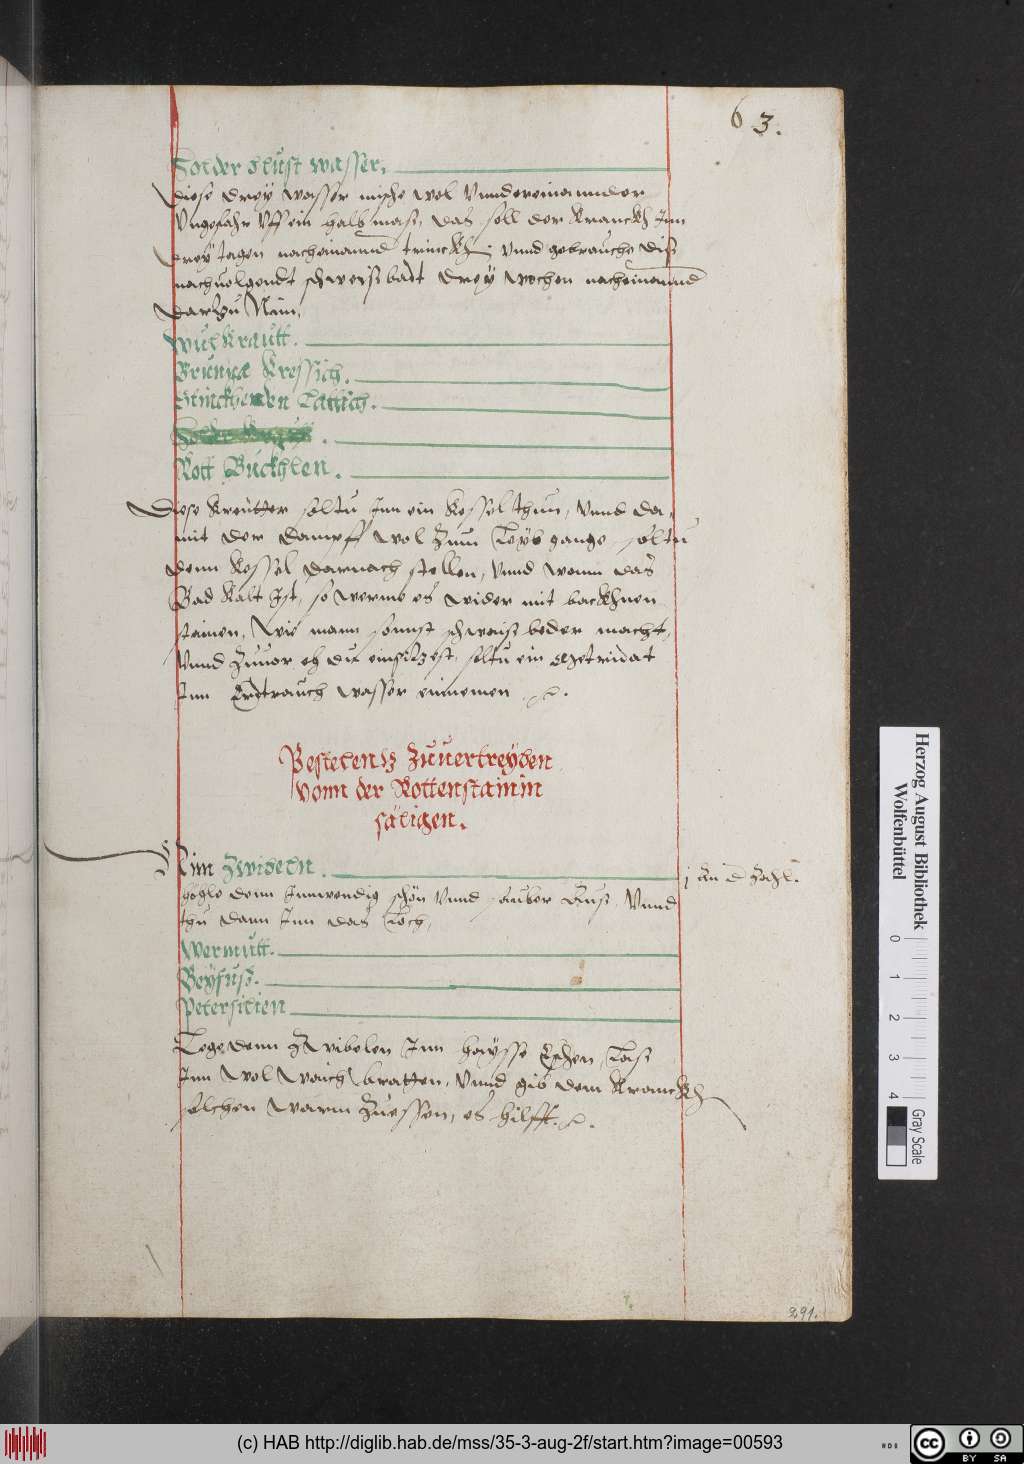 63.
Holder blust wasser.
Diese drey wasser mische wol vnndereinannder
Vngefahr vff ein halb mass, das soll der Kranckh Inn
drey tagen nacheinannd trinckh, vnnd gebrauche diß
nachuolgendt schweisbadt drey wochen nacheinannd
darzu Nim.
Wulkrautt.
Brunna Kressich.
Stinckhenden Lattich.
Rott Buckhlen.
Diese Kreutter soltu Inn ein Kessel thun, vnnd da,
mit der dampff wol zum Leyb gange soltu
denn Kessel darnach stellen, vnnd wenn das
Bad Kalt Ist, so werme es wider mit backhnen
stainen, Wie mann sonnst schwaiß beder macht,
Vnnd zuuor eh du einsitzest, soltu ein
Inn Erdtrauch wasser einnemen
Pestelentz Zuuertreyben
vonn der Rottenstainin
säligen.
Nim Zwibeln.
j an d Zahl.
hoyle denn Innwendig schön vnnd sauber auß, Vnnd
thu dann Inn das Loch,
Wermutt.
Beyfuß.
Petersilien
Lege denn Zwibelen Inn haysse Eschen, Lass
Inn wol waich bratten, vnnd gib dem Kranckh
solchen warm Zuessen, es hilfft.
291.
Herzog August Bibliothek
Wolfenbüttel
0 1 2 3 4
Gray Scale
(c) HAB http://diglib.hab.de/mss/35-3-aug-2f/start.htm?image=00593
cc BY SA